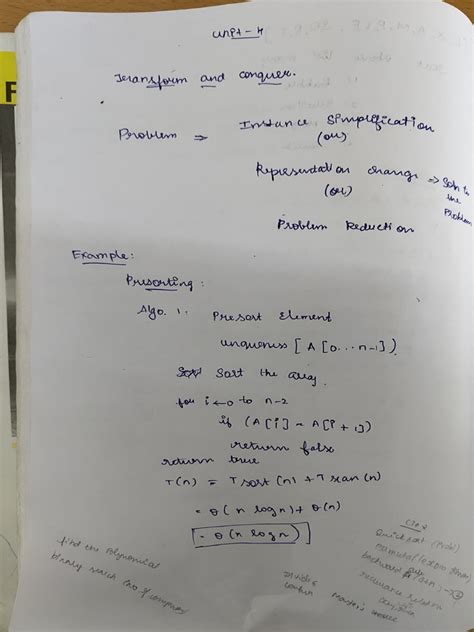 Unit - 4
Transform and conquer.
Problem ⇒ Instance Simplification
(or)
Representation change ⇒ Soln to
the
Problem
(or)
Problem Reduction
Example:
Presorting:
Algo. 1. Presort Element
uniqueness [A[0...n-1])
Sort the array
for i ← 0 to n-2
if (A[i] = A[i+1])
return false
return true
T(n) = T sort (n) + T scan (n)
= θ(n log n) + θ(n)
= θ(n log n)
find the Polynomial
binary search (no of
divide &
conquer
Master's
Quick sort
backward
recurrence relation